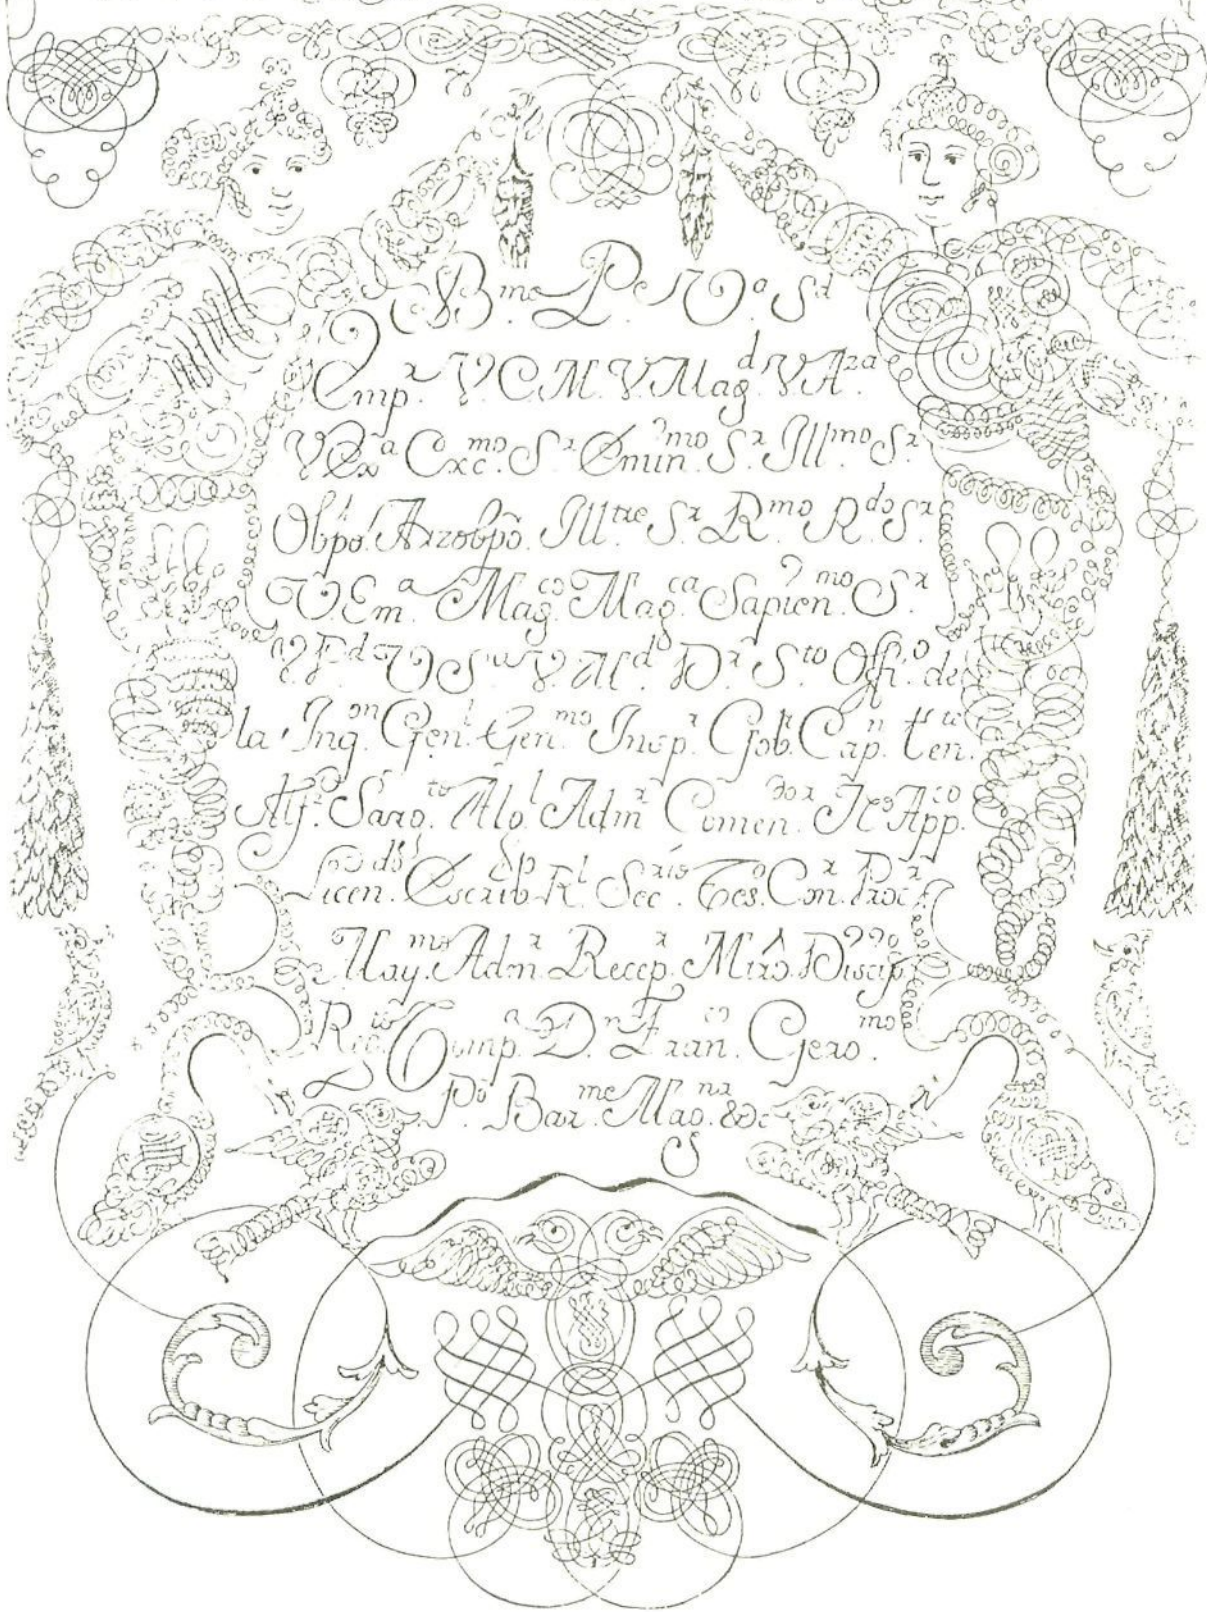 B.me P.e V.a S.d
Emp.r V.C.M. V.Mag.d V.A.za
V.Ex.a Exc.mo S.r Emin.mo S.r Ill.mo S.r
Obpo. Arzobpo. Ill.tre S.r R.mo R.do S.r
V.Em.a Mag.co Mag.ca Sapien.mo S.r
V.Md. D.r S.to Offi.o de
la Inq.on Gen.l Gen.mo Insp.r Gob.r Cap.n ten.te
Alf.z Sarg.to Adm.r Comen.dor App.co
Licen.do Escrib. R.l Sec.rio Tes.o Con.r Proc.r
May.mo Adm.r Recep.r Mtro. Discip.
Comp.a D.n Fran.co Gero.mo
P.o Bar.me Mag.na &c